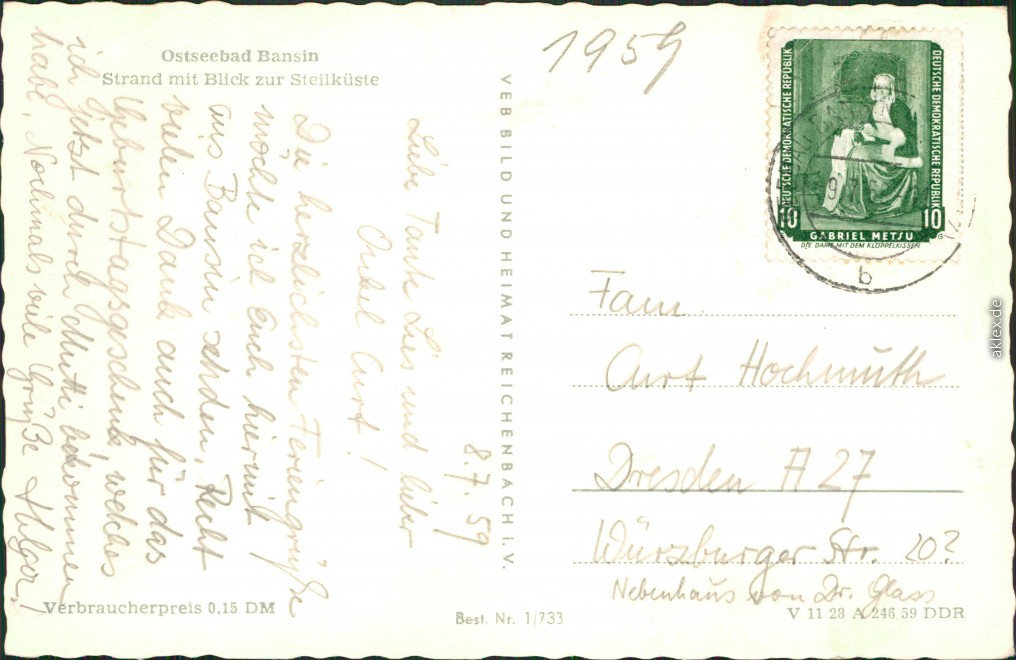 Ostseebad Bansin
Strand mit Blick zur Steilküste
1959
8.7.59
Liebe Tante Lies und lieber
Onkel Curt!
Die herzlichsten Feriengrüße
möchte ich Euch hiermit
aus Bansin senden. Recht
vielen Dank auch für das
Geburtstagsgeschenk, welches
ich jetzt durch Mutti bekommen
habe. Nochmals viele Grüße Holger!
Verbraucherpreis 0,15 DM
VEB BILD UND HEIMAT REICHENBACH i. V.
Best. Nr. 1/733
DEUTSCHE DEMOKRATISCHE REPUBLIK
DEUTSCHE DEMOKRATISCHE REPUBLIK
10 10
GABRIEL METSU
DIE DAME MIT DEM KLÖPPELKISSEN
b
Fam.
Curt Hochmuth
Dresden A 27
Würzburger Str. 20?
Nebenhaus von Dr. Glass
V 11 28 A 246 59 DDR
aklex.de